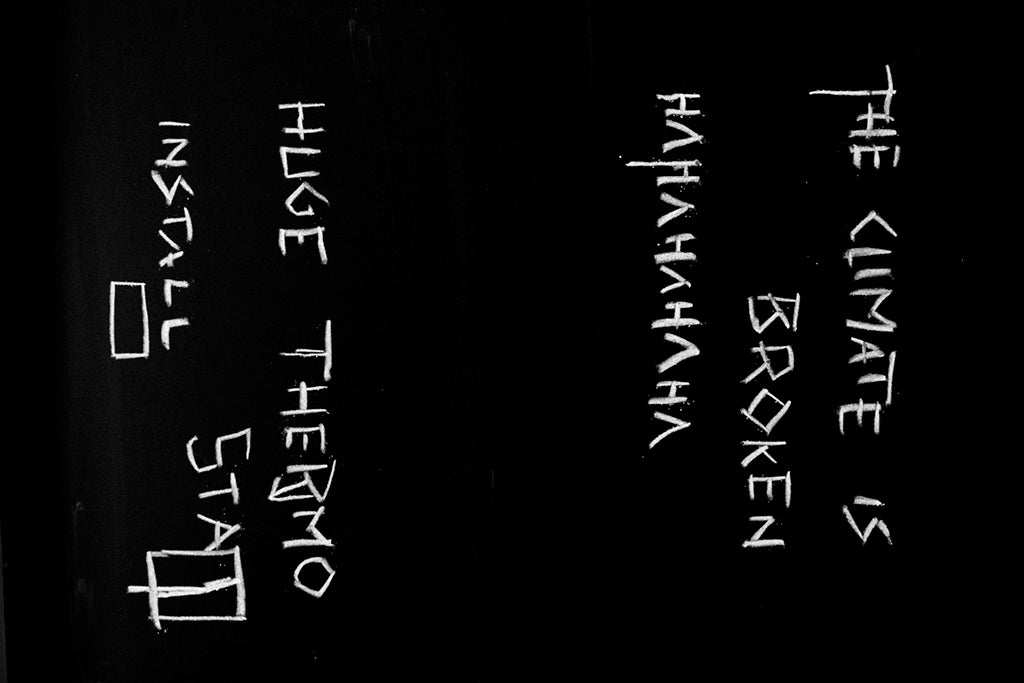 THE CLIMATE IS
BROKEN
HAHAHAHAHA
HUGE THERMO
STAT
INSTALL